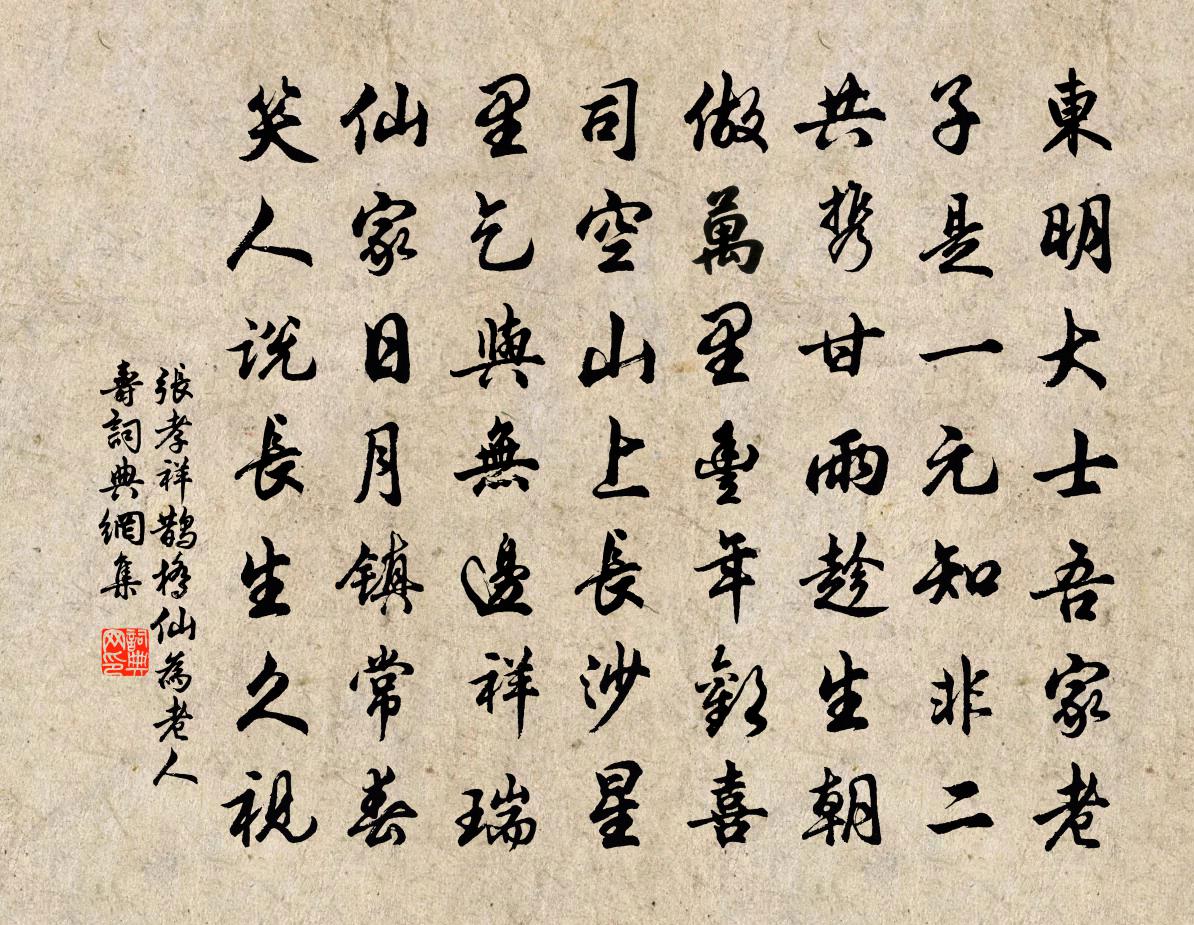 東明大士吾家老
子是一元知非二
共携甘雨趁生朝
做萬里豐年歡喜
司空山上長沙星
里乞與無邊祥瑞
仙家日月鎮常春
笑人說長生久視
張孝祥鵲橋仙為老人
壽詞典網集
詞典網印